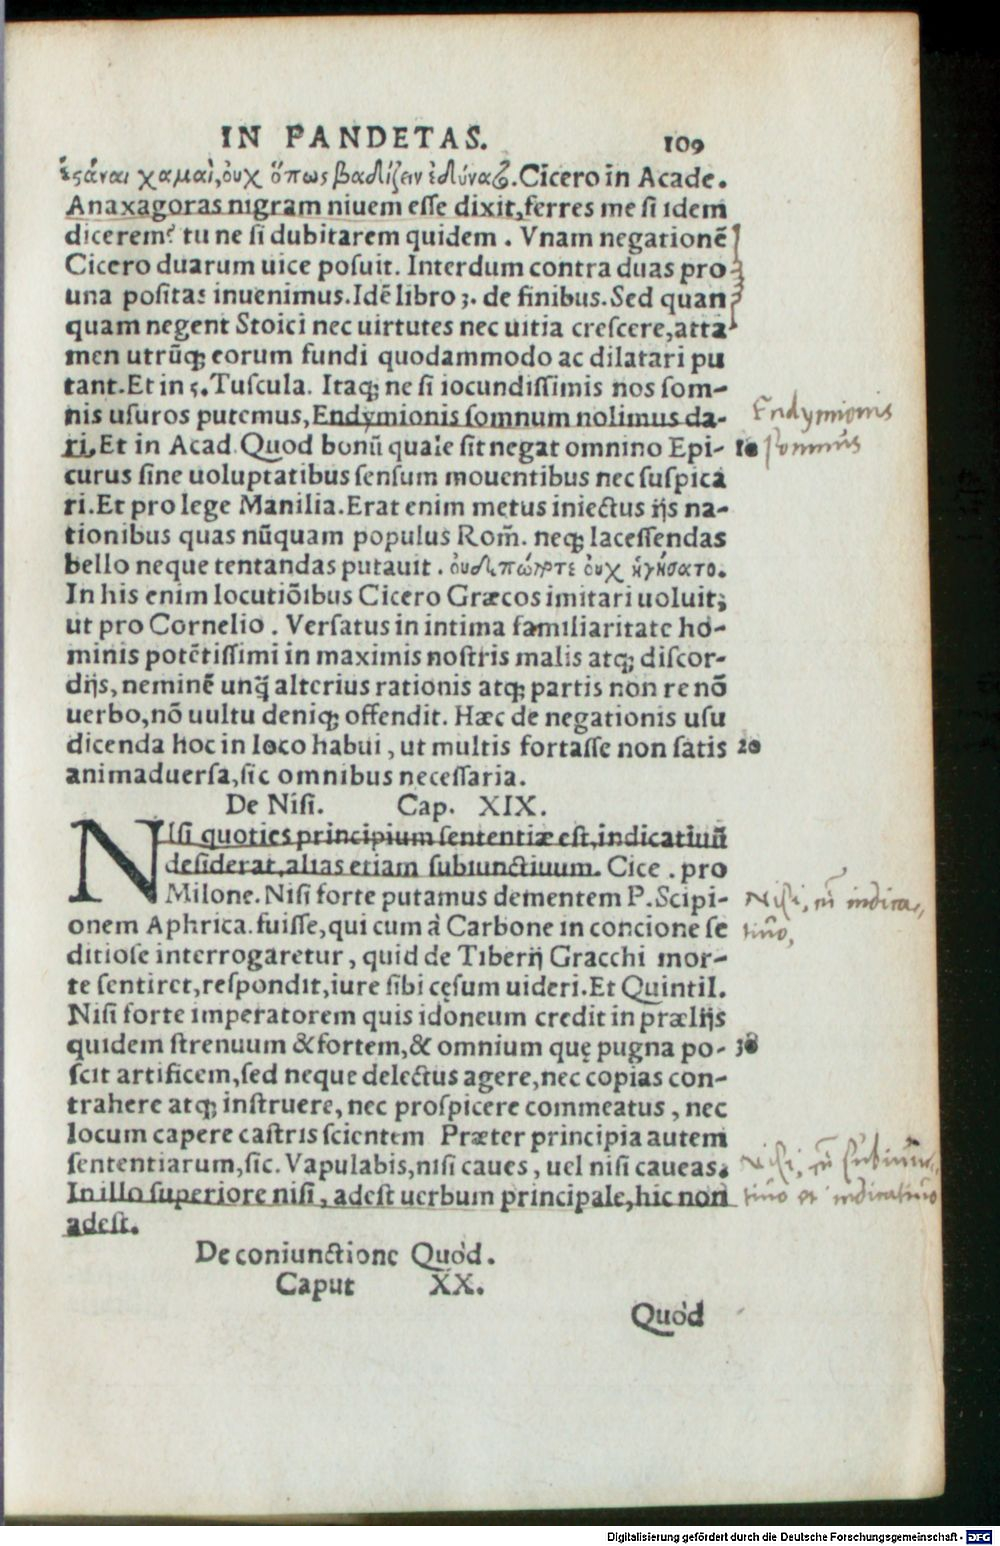 IN PANDETAS. 109
ἑςάναι χαμαὶ, οὐχ ὅπως βαδίζειν ἐδύναζ. Cicero in Acade.
Anaxagoras nigram niuem esse dixit, ferres me si idem
dicerem? tu ne si dubitarem quidem. Vnam negationē
Cicero duarum uice posuit. Interdum contra duas pro
una positas inuenimus. Idē libro 3. de finibus. Sed quan
quam negent Stoici nec uirtutes nec uitia crescere, atta
men utrūq; eorum fundi quodammodo ac dilatari pu
tant. Et in 5. Tuscula. Itaq; ne si iocundissimis nos som-
nis usuros putemus, Endymionis somnum nolimus da-
ri. Et in Acad. Quod bonū quale sit negat omnino Epi- 10
curus sine uoluptatibus sensum mouentibus nec suspica
ri. Et pro lege Manilia. Erat enim metus iniectus ijs na-
tionibus quas nūquam populus Rom̄. neq; lacessendas
bello neque tentandas putauit. οὐδεπώποτε οὐχ ἡγήσατο.
In his enim locutiōibus Cicero Græcos imitari uoluit;
ut pro Cornelio. Versatus in intima familiaritate ho-
minis potētissimi in maximis nostris malis atq; discor-
dijs, neminē unq̄ alterius rationis atq; partis non re nō
uerbo, nō uultu deniq; offendit. Hæc de negationis usu
dicenda hoc in loco habui, ut multis fortasse non satis 20
animaduersa, sic omnibus necessaria.
De Nisi. Cap. XIX.
NIsi quoties principium sententiæ est, indicatiuū
desiderat, alias etiam subiunctiuum. Cice. pro
Milone. Nisi forte putamus dementem P. Scipi-
onem Aphrica. fuisse, qui cum à Carbone in concione se
ditiose interrogaretur, quid de Tiberij Gracchi mor-
te sentiret, respondit, iure sibi cęsum uideri. Et Quintil.
Nisi forte imperatorem quis idoneum credit in prælijs
quidem strenuum & fortem, & omnium quę pugna po- 30
scit artificem, sed neque delectus agere, nec copias con-
trahere atq; instruere, nec prospicere commeatus, nec
locum capere castris scientem Præter principia autem
sententiarum, sic. Vapulabis, nisi caues, uel nisi caueas.
In illo superiore nisi, adest uerbum principale, hic non
adest.
De coniunctione Quòd.
Caput XX.
Quòd
Endymionis
somnus
Nisi, cū indica-
tiuo,
Nisi, cū subiunc-
tiuo et indicatiuo
Digitalisierung gefördert durch die Deutsche Forschungsgemeinschaft - DFG